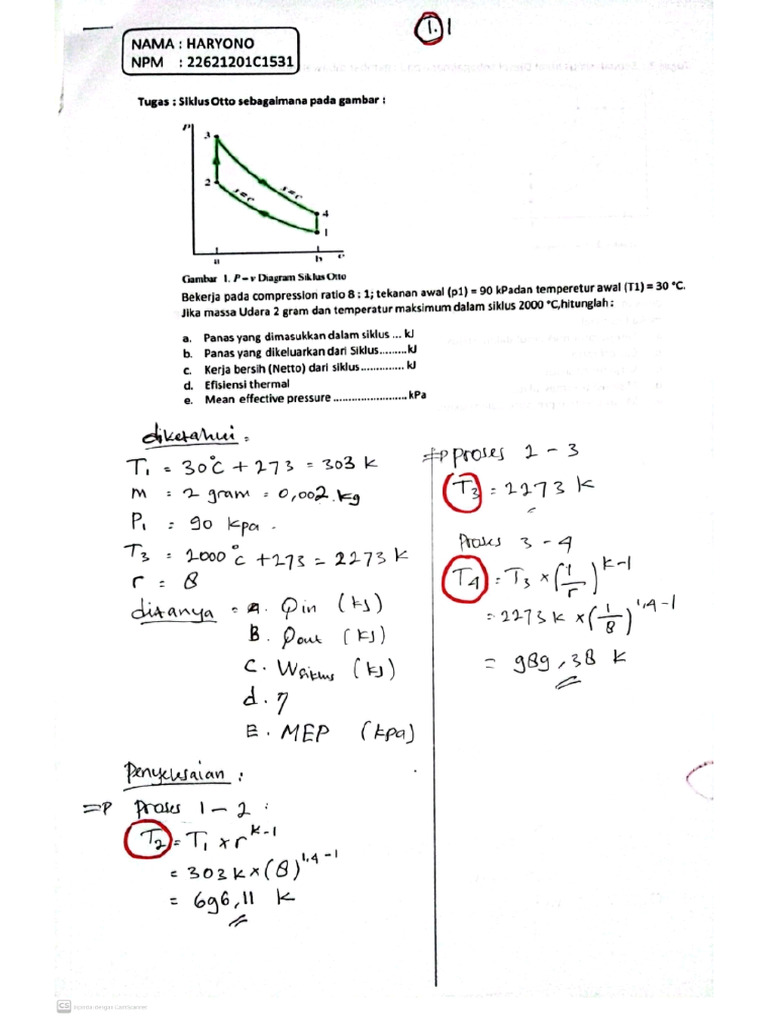 1.1
NAMA : HARYONO
NPM : 22621201C1531
Tugas : Siklus Otto sebagaimana pada gambar :
P
3
2
s=c
s=c
4
1
a
b
v
Gambar 1. P – v Diagram Siklus Otto
Bekerja pada compression ratio 8 : 1; tekanan awal (p1) = 90 kPadan temperetur awal (T1) = 30 °C.
Jika massa Udara 2 gram dan temperatur maksimum dalam siklus 2000 °C,hitunglah :
a. Panas yang dimasukkan dalam siklus ... kJ
b. Panas yang dikeluarkan dari Siklus.........kJ
c. Kerja bersih (Netto) dari siklus.............. kJ
d. Efisiensi thermal
e. Mean effective pressure ........................kPa
diketahui =
T1 = 30°C + 273 = 303 k
m = 2 gram = 0,002 kg
P1 = 90 kpa.
T3 = 2000°C + 273 = 2273 k
r = 8
ditanya = a. Qin (kJ)
B. Qout (kJ)
C. Wsiklus (kJ)
d. η
E. MEP (kpa)
Penyelesaian :
=> Proses 1 - 2 :
T2 = T1 x r^k-1
= 303 k x (8)^1,4-1
= 696,11 k
=> proses 2 - 3
T3 = 2273 k
Proses 3 - 4
T4 = T3 x (1/r)^k-1
= 2273 k x (1/8)^1,4-1
= 989,38 k
CS Dipindai dengan CamScanner